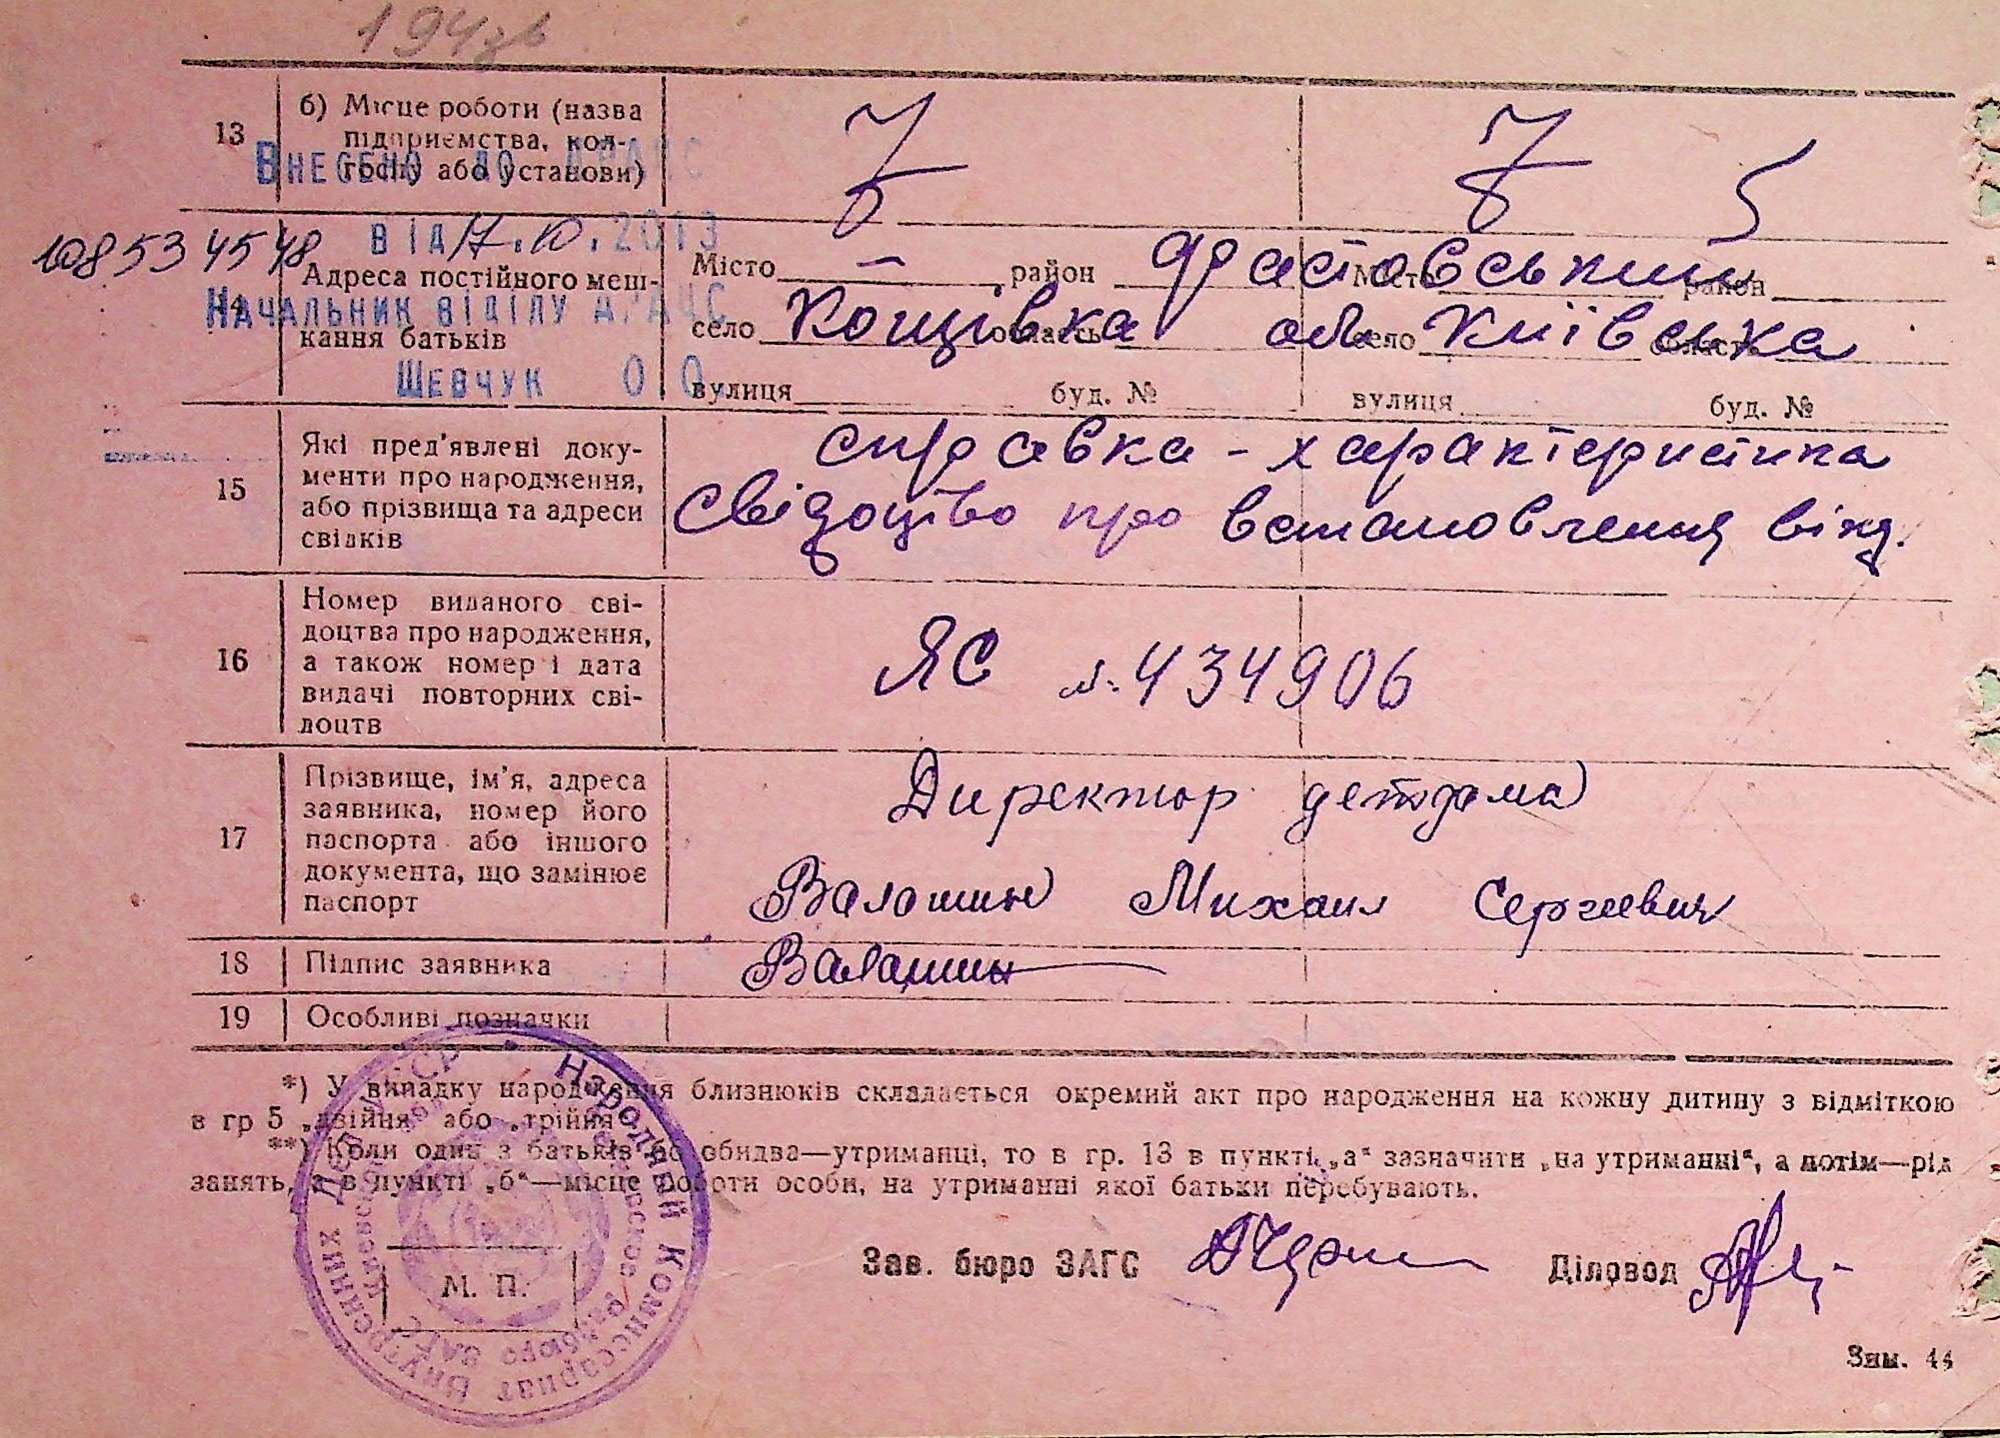 194зв
13
б) Місце роботи (назва
підприємства, кол-
госпу або установи)
Внесено до ДРАЦС
від 17.10.2013
10853 4548
Начальник відділу ДРАЦС
Шевчук О О
14
Адреса постійного меш-
кання батьків
Місто — район Фастовський
село Кощіївка область
Місто район
обл. село Київська область
вулиця буд. №
вулиця буд. №
15
Які пред'явлені доку-
менти про народження,
або прізвища та адреси
свідків
справка - характеристика
Свідоцтво про встановлення вікд.
16
Номер виданого сві-
доцтва про народження,
а також номер і дата
видачі повторних сві-
доцтв
ЯС №. 434906
17
Прізвище, ім'я, адреса
заявника, номер його
паспорта або іншого
документа, що замінює
паспорт
Директор детдома
Валашин Михаил Сергеевич
18
Підпис заявника
Валашин
19
Особливі позначки
*) У випадку народження близнюків складається окремий акт про народження на кожну дитину з відміткою
в гр 5 „двійня“ або „трійня“
**) Коли один з батьків або обидва—утриманці, то в гр. 13 в пункті „а“ зазначити „на утриманні“, а потім—рід
занять, а в пункті „б“—місце роботи особи, на утриманні якої батьки перебувають.
Народный Комиссариат Внутренних Дел УССР
М. П.
Зав. бюро ЗАГС
Діловод
Зим. 44